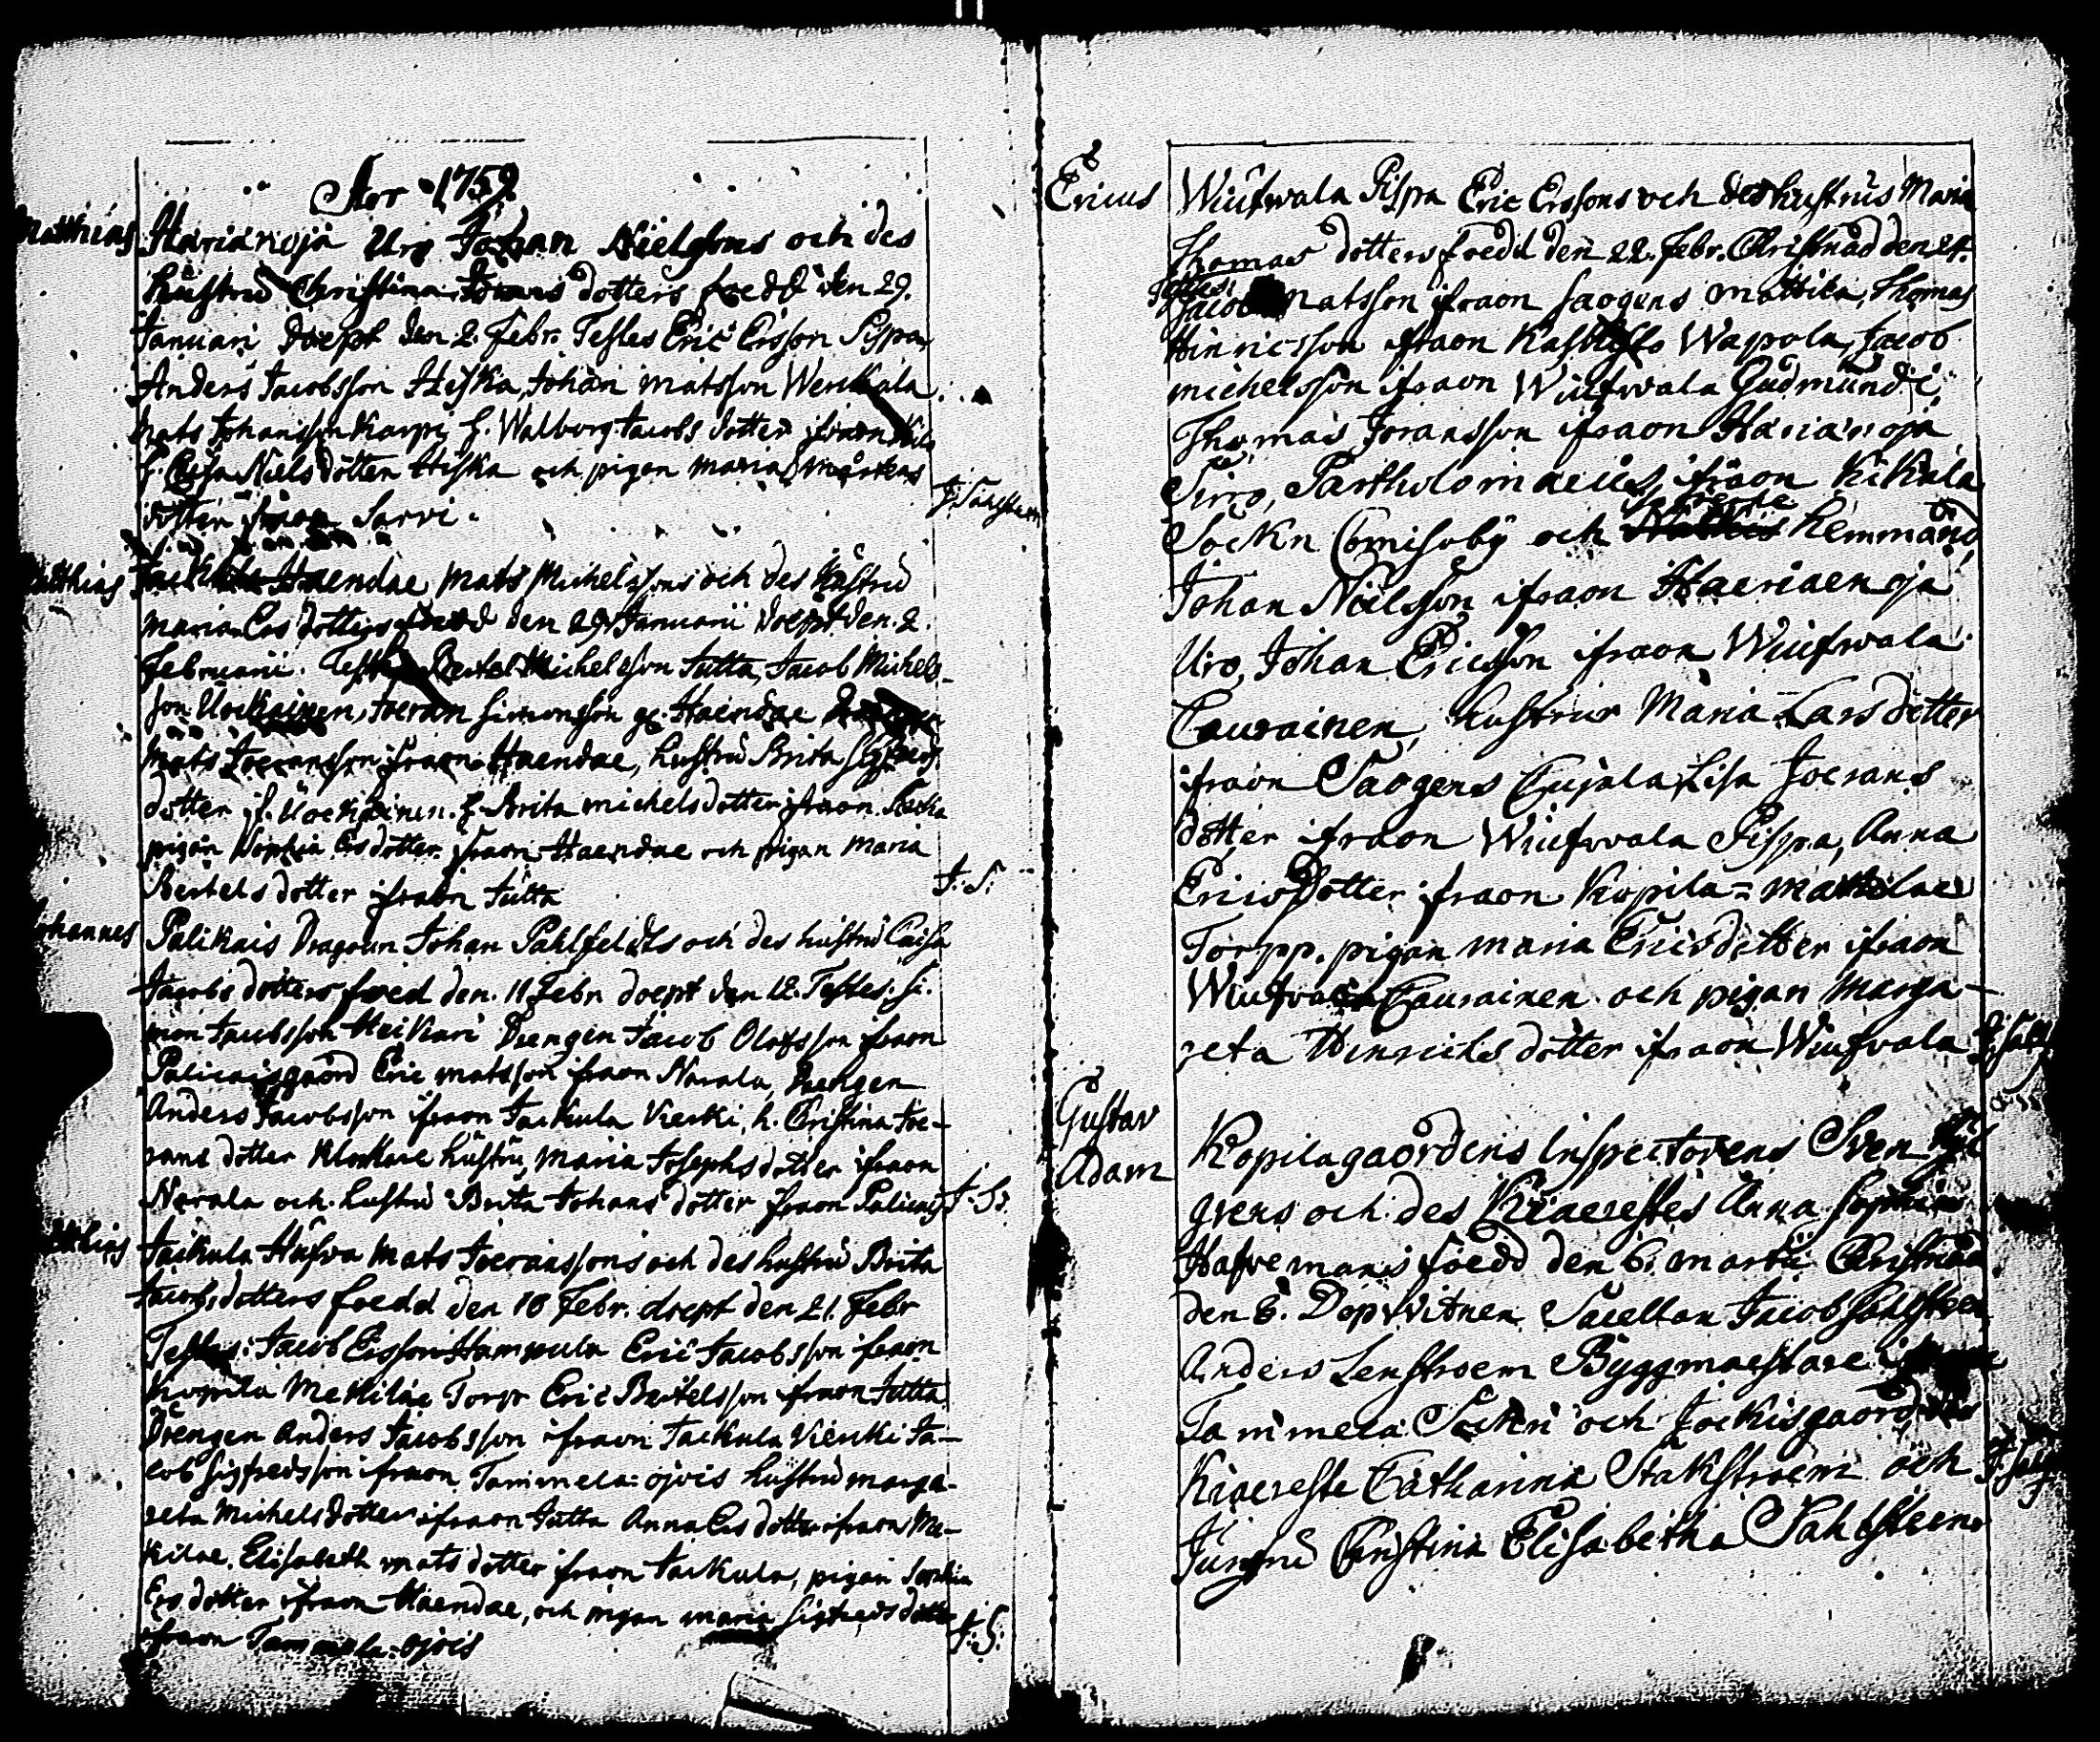 Åor 1759
Matthias Harianoja Uro Johan Nielsons och des
hustru Christina Jorans dotters foedd den 29.
Januari doept den 2. Febr. Testes Eric Ersson Pispa,
Anders Jacobsson Hiska, Johan Matsson Werikala
Mats Johansson Karpi, h. Walborg Jacobs dotter ifraon
h. Caisa Niels dotter Hiska och pigan Maria Mårtens
dotter ifraon Sarvi. J: Sahlsteen
Matthias Haendae Mats Michelssons och des hustru
Maria Ers dotters foedd den 29 Januarii doept den 2.
Februarii. Testes Bertel Michelsson Jutta, Jacob Michels-
son Uockainen, Joeran Simonsson gl. Haendae
Mats Joeransson ifraon Haendae, hustru Brita Sigfreds
dotter if. Uockainen. h. Brita Michels dotter ifraon
pigan Sophia Ers dotter ifraon Haendae och pigan Maria
Bertels dotter ifraon Jutta J: S:
Johannes Palikais Dragoun Johan Pahlfeldts och des hustru Caisa
Jacobs dotters foed den 11 Febr doept den 12. Testes: Si-
mon Jacobsson Heikari Drengen Jacob Olofsson ifraon
Palicaisgaord Eric Matsson ifraon Narala, Drengen
Anders Jacobsson ifraon Jackula Vierki, h. Christina Joe-
rans dotter Klockare hustru, Maria Josephs dotter ifraon
Narala och hustru Brita Johans dotter ifraon Palicais J: S:
Matthias Jackula Hufva Mats Joeranssons och des hustru Brita
Jacobs dotters foedd den 18 Febr. doept den 21. Febr
Testes: Jacob Ersson Hampula Eric Jacobsson ifraon
Kopila Mekilae Torp Eric Bertelsson ifraon Jutta
Drengen Anders Jacobsson ifraon Jackula Vierki Ja-
cob Sigfredsson ifraon Tammela: ojois hustru Marga-
reta Michels dotter ifraon Jutta Anna Ers dotter ifraon Me-
kilae. Elisabeth Mats dotter ifraon Jackula, pigan Sophia
Ers dotter ifraon Haendae, och pigan Maria Sigfreds dotter
ifraon Tammela: ojois J: S:
Ericus Wiufwala Pispa Eric Erssons och des hustrus Maria
Thomas dotters foedd den 22. Febr. Christnad den 24.
Testes: Jacob Matsson ifraon Saogens Mattila, Thomas
Hinricsson ifraon Wapola, Jacob
Michelsson ifraon Wiufwala Gudmundi,
Thomas Joransson ifraon Harianoja
Sirro, Bartholomaeus ifraon Kikala
Sockn Comisoby och hemmand
Johan Nielsson ifraon Haeriaenoja
Uro, Johan Ericsson ifraon Wiufwala
Caurainen, hustrur Maria Lars dotter
ifraon Saogens Cujala Lisa Joerans
dotter ifraon Wiufwala Pispa, Anna
Erics dotter ifraon Kopila = Makilae
Torpp. pigan Maria Erics dotter ifraon
Wiufvala Caurainen och pigan Marga-
reta Hinrichs dotter ifraon Wiufvala J: Sahl
Gustav
Adam Kopilagaordens Inspectorens Sven
grens och des Kiaerestes Anna Sophia
Hafvemans foedd den 6. Martii Christnad
den 8. Dop Witnen Sacellan Jacob Sahlsteen
Anders Lenstroem Byggmaestare
Tammela Sockn och Jockisgaord,
Kiaereste Catharina Stakstroem och
Jungfru Christina Elisabetha Sahlsteen